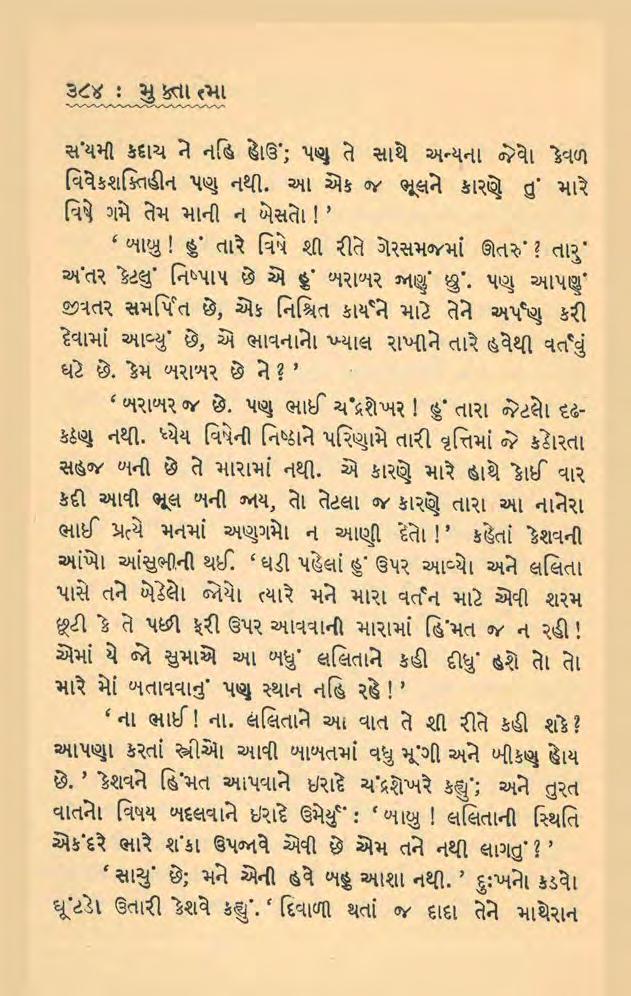 ૩૮૪ : મુક્તાત્મા
સંયમી કદાચ ને નહિ હોઉં; પણ તે સાથે અન્યના જેવો કેવળ
વિવેકશક્તિહીન પણ નથી. આ એક જ ભૂલને કારણે તું મારે
વિષે ગમે તેમ માની ન બેસતો ! '
' બાબુ ! હું તારે વિષે શી રીતે ગેરસમજમાં ઊતરું ? તારું
અંતર કેટલું નિષ્પાપ છે એ હું બરાબર જાણું છું. પણ આપણું
જીવતર સમર્પિત છે, એક નિશ્ચિત કાર્યને માટે તેને અર્પણ કરી
દેવામાં આવ્યું છે, એ ભાવનાનો ખ્યાલ રાખીને તારે હવેથી વર્તવું
ઘટે છે. કેમ બરાબર છે ને ? '
' બરાબર જ છે. પણ ભાઈ ચંદ્રશેખર ! હું તારા જેટલો દૃઢ-
કઠણ નથી. ધ્યેય વિષેની નિષ્ઠાને પરિણામે તારી વૃત્તિમાં જે કઠોરતા
સહજ બની છે તે મારામાં નથી. એ કારણે મારે હાથે કોઈ વાર
કદી આવી ભૂલ બની જાય, તો તેટલા જ કારણે તારા આ નાનેરા
ભાઈ પ્રત્યે મનમાં અણગમો ન આણી દેતો ! ' કહેતાં કેશવની
આંખો આંસુભીની થઈ. ' ઘડી પહેલાં હું ઉપર આવ્યો અને લલિતા
પાસે તને બેઠેલો જોયો ત્યારે મને મારા વર્તન માટે એવી શરમ
છૂટી કે તે પછી ફરી ઉપર આવવાની મારામાં હિંમત જ ન રહી !
એમાં યે જો સુમાએ આ બધું લલિતાને કહી દીધું હશે તો તો
મારે મોં બતાવવાનું પણ સ્થાન નહિ રહે ! '
' ના ભાઈ ! ના. લલિતાને આ વાત તે શી રીતે કહી શકે ?
આપણા કરતાં સ્ત્રીઓ આવી બાબતમાં વધુ મૂંગી અને બીકણ હોય
છે. ' કેશવને હિંમત આપવાને ઇરાદે ચંદ્રશેખરે કહ્યું; અને તુરત
વાતનો વિષય બદલવાને ઇરાદે ઉમેર્યું : ' બાબુ ! લલિતાની સ્થિતિ
એકંદરે ભારે શંકા ઉપજાવે એવી છે એમ તને નથી લાગતું ? '
' સાચું છે; મને એની હવે બહુ આશા નથી. ' દુઃખનો કડવો
ઘૂંટડો ઉતારી કેશવે કહ્યું. ' દિવાળી થતાં જ દાદા તેને માથેરાન